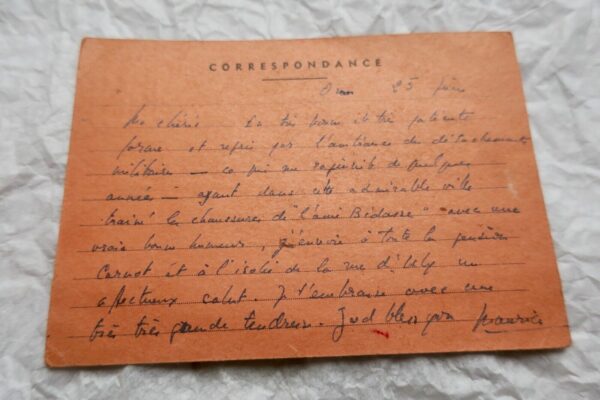 CORRESPONDANCE
25
Ma chérie. En très bonne et très
forme et repris par l'ambiance du détachement
militaire – ce qui me rajeunit de quelques
années – ayant dans cette admirable ville
trainé les chaussures de "l'ami Bidasse" avec une
vraie bonne humeur, j'envoie à toute la
Carnot et à l'isolée de la rue d'
affectueux salut. Je t'embrasse avec une
très très grande tendresse. God bless you Maurice